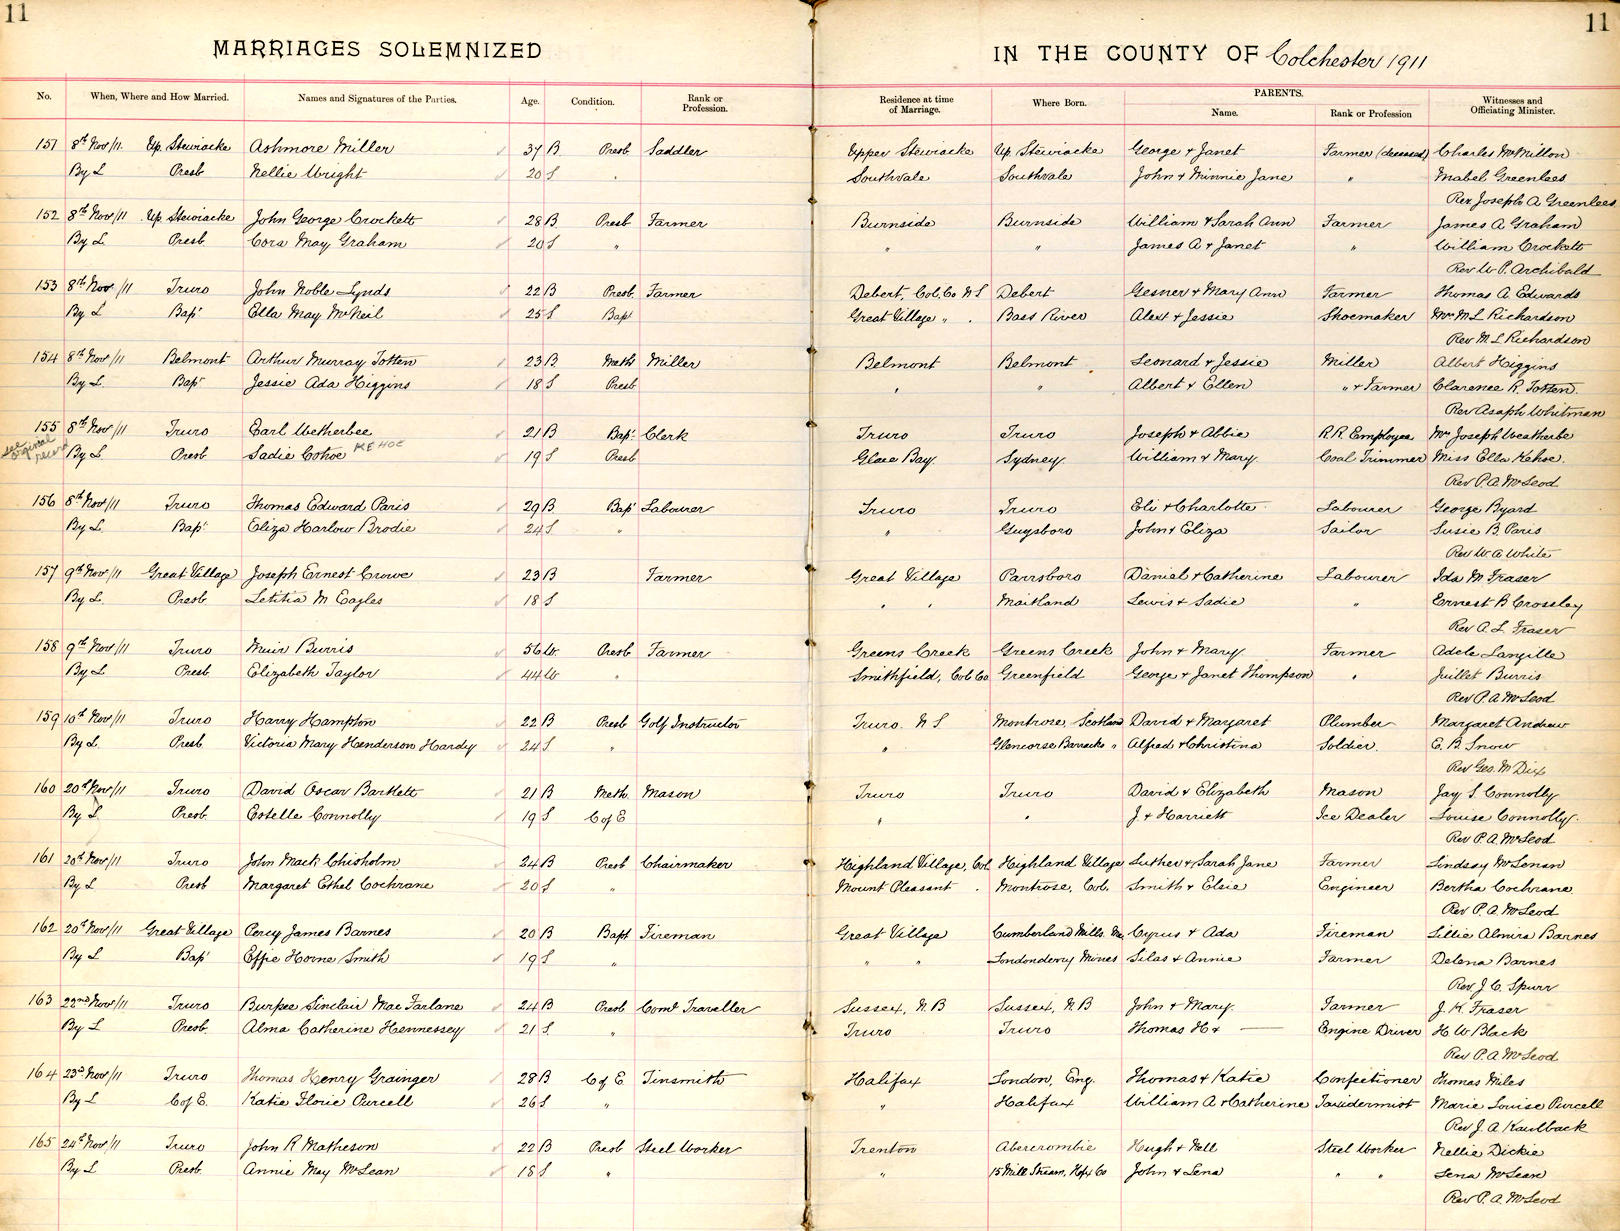 11
11
MARRIAGES SOLEMNIZED
IN THE COUNTY OF Colchester 1911
No. When, Where and How Married. Names and Signatures of the Parties. Age. Condition. Rank or Profession. Residence at time of Marriage. Where Born. PARENTS. Name. Rank or Profession Witnesses and Officiating Minister.
151 8th Nov/11. Up. Stewiacke Ashmore Miller 37 B Presb Saddler Upper Stewiacke Up. Stewiacke George + Janet Farmer (deceased) Charles McMillon
By L Presb Nellie Wright 20 S " Southvale Southvale John + Minnie Jane " Mabel Greenlees
Rev Joseph A Greenlees
152 8th Nov/11 Up. Stewiacke John George Crockett 28 B Presb Farmer Burnside Burnside William + Sarah Ann Farmer James A Graham
By L. Presb Cora May Graham 20 S " " " James A + Janet " William Crockett
Rev W P. Archibald
153 8th Nov/11 Truro John Noble Lynds 22 B Presb. Farmer Debert, Col. Co N S Debert Gesner + Mary Ann Farmer Thomas A Edwards
By L Bapt Ella May McNeil 25 S Bapt Great Village " Bass River Alext + Jessie Shoemaker Mrs M L Richardson
Rev M L Richardson
154 8th Nov/11 Belmont Arthur Murray Totten 23 B Meth Miller Belmont Belmont Leonard + Jessie Miller Albert Higgins
By L. Bapt Jessie Ada Higgins 18 S Presb " " Albert + Ellen " + Farmer Clarence R. Totten
Rev Asaph Whitman
155 8th Nov/11 Truro Earl Wetherbee 21 B Bapt. Clerk Truro Truro Joseph + Abbie R.R. Employee Mrs Joseph Weatherbe
see original record By L. Presb Sadie Cohoe KEHOE 19 S Presb Glace Bay. Sydney William + Mary Coal Trimmer Miss Ella Kehoe.
Rev P. A. McLeod
156 8th Nov/11 Truro Thomas Edward Paris 29 B Bapt Labourer Truro Truro Eli + Charlotte Labourer George Byard
By L. Bapt Eliza Harlow Brodie 24 S " " Guysboro John + Eliza Sailor Susie B. Paris
Rev W. A White
157 9th Nov/11 Great Village Joseph Ernest Crowe 23 B Farmer Great Village Parrsboro Daniel + Catherine Labourer Ida M Fraser
By L. Presb Letitia M Eagles 18 S " " Maitland Lewis + Sadie " Ernest B Crossley
Rev A. L Fraser
158 9th Nov/11 Truro Muir Burris 56 W Presb Farmer Greens Creek Greens Creek John + Mary Farmer Adele Langille
By L Presb. Elizabeth Taylor 44 W " Smithfield, Col Co Greenfield George + Janet Thompson " Juillet Burris
Rev P. A. McLeod
159 10th Nov/11 Truro Harry Hampton 22 B Presb Golf Instructor Truro. N S Montrose, Scotland David + Margaret Plumber Margaret Andrew
By L. Presb. Victoria Mary Henderson Hardy 24 S " " Glencorse Barracks " Alfred + Christina Soldier. E. B. Snow
Rev Geo. M Dix
160 20th Nov/11 Truro David Oscar Bartlett 21 B Meth Mason Truro Truro David + Elizabeth Mason Jay S. Connolly
By L Presb Estelle Connolly 19 S C of E " " J. + Harriett Ice Dealer Louise Connolly.
Rev P. A McLeod
161 20th Nov/11 Truro John Mack Chisholm 24 B Presb Chairmaker Highland Village, Col. Highland Village Luther + Sarah Jane Farmer Lindsay McLenan
By L Presb Margaret Ethel Cochrane 20 S " Mount Pleasant Montrose, Col. Smith + Elsie Engineer Bertha Cochrane
Rev P. A. McLeod
162 20th Nov/11 Great Village Percy James Barnes 20 B Bapt Fireman Great Village Cumberland Mills. Cyrus + Ada Fireman Lillie Almira Barnes
By L Bapt Effie Horne Smith 19 S " " " Londonderry Mines Silas + Annie Farmer Delena Barnes
Rev J. C. Spurr
163 22nd Nov/11 Truro Burpee Sinclair Mac Farlane 24 B Presb Coml Traveller Sussex, N. B Sussex, N. B John + Mary. Farmer J. K. Fraser
By L Presb. Alma Catherine Hennessey 21 S " Truro Truro Thomas H + — Engine Driver H. W Black
Rev P. A McLeod
164 23rd Nov/11 Truro Thomas Henry Grainger 28 B C of E Tinsmith Halifax London, Eng. Thomas + Katie Confectioner Thomas Miles
By L C of E. Katie Florie Purcell 26 S " " Halifax William A + Catherine Taxidermist Marie Louise Purcell
Rev J. A Kaulback
165 24th Nov/11 Truro John R Matheson 22 B Presb Steel Worker Trenton Abercrombie Hugh + Nell Steel Worker Nellie Dickie
By L Presb. Annie May McLean 18 S " " 15 Mill Stream, John + Lena " " Lena McLean
Rev P. A. McLeod